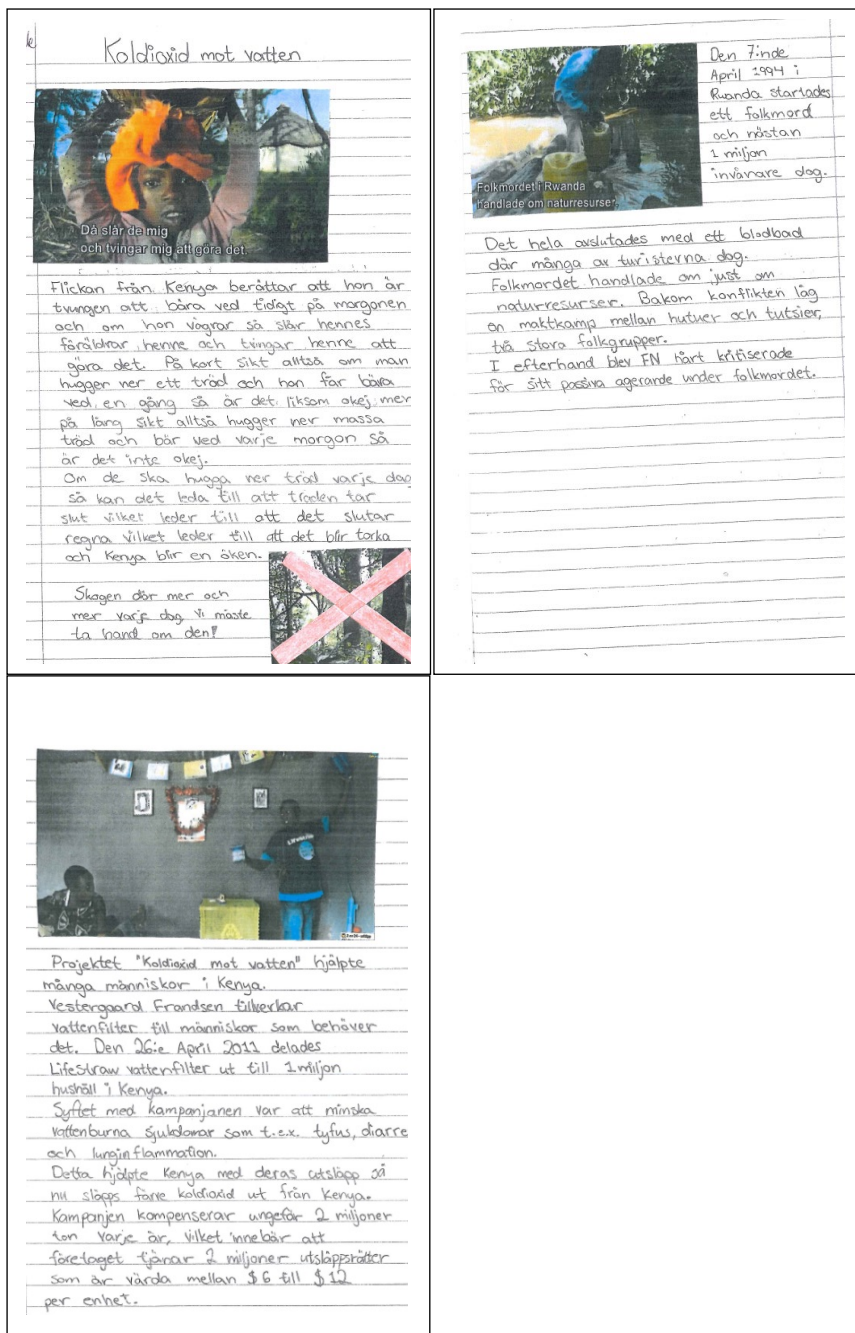 Koldioxid mot vatten
Då slår de mig
och tvingar mig att göra det.
Flickan från Kenya berättar att hon är
tvungen att bära ved tidigt på morgonen
och om hon vägrar så slår hennes
föräldrar henne och tvingar henne att
göra det. På kort sikt alltså om man
hugger ner ett träd och hon får bära
ved en gång så är det liksom okej mer
på lång sikt alltså hugger ner massa
träd och bär ved varje morgon så
är det inte okej.
Om de ska hugga ner träd varje dag
så kan det leda till att träden tar
slut vilket leder till att det slutar
regna vilket leder till att det blir torka
och Kenya blir en öken.
Skogen dör mer och
mer varje dag vi måste
ta hand om den!
Den 7:nde
April 1994 i
Rwanda startades
ett folkmord
och nästan
1 miljon
invånare dog.
Folkmordet i Rwanda
handlade om naturresurser.
Det hela avslutades med ett blodbad
där många av turisterna dog.
Folkmordet handlade om just om
naturresurser. Bakom konflikten låg
en maktkamp mellan hutuer och tutsier,
två stora folkgrupper.
I efterhand blev FN hårt kritiserade
för sitt passiva agerande under folkmordet.
Projektet "Koldioxid mot vatten" hjälpte
många människor i Kenya.
Vestergaard Frandsen tillverkar
vattenfilter till människor som behöver
det. Den 26:e April 2011 delades
LifeStraw vattenfilter ut till 1 miljon
hushåll i Kenya.
Syftet med kampanjanen var att minska
vattenburna sjukdomar som t.e.x. tyfus, diarre
och lunginflammation.
Detta hjälpte Kenya med deras utsläpp så
nu släpps färre koldioxid ut från Kenya.
Kampanjen kompenserar ungefär 2 miljoner
ton varje år, vilket innebär att
företaget tjänar 2 miljoner utsläppsrätter
som är värda mellan $6 till $12
per enhet.